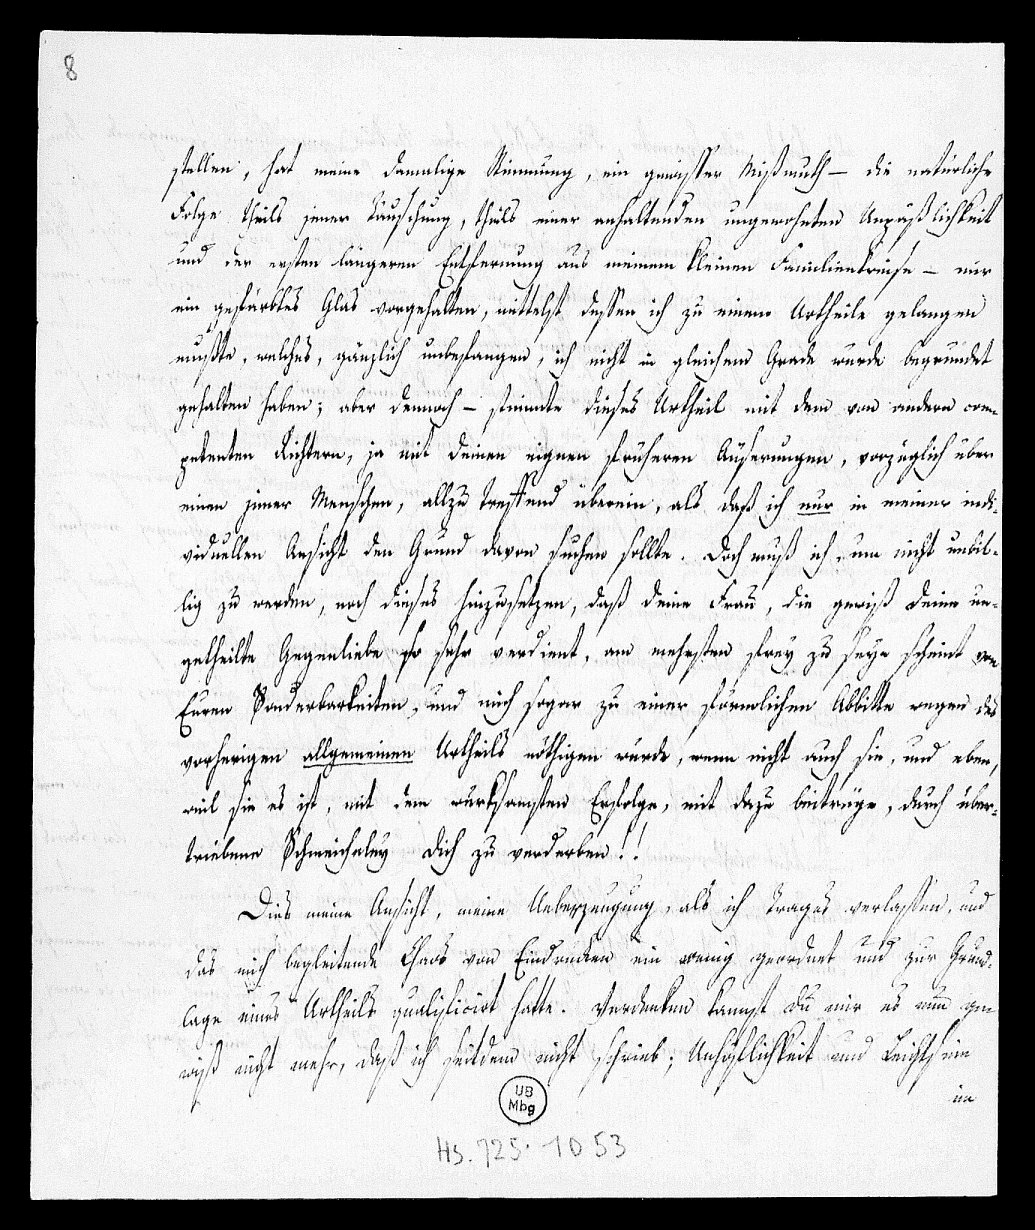 8
stellen, hat meine damalige Stimmung, ein gewisser Mißmuth – die natürliche
Folge theils jener Täuschung, theils einer anhaltenden ungewohnten Unpäßlichkeit
und der ersten längeren Entfernung aus meinem kleinen Familienkreise – mir
ein gefärbtes Glas vorgehalten, mittelst dessen ich zu einem Urtheile gelangen
mußte, welches, gänzlich unbefangen, ich nicht in gleichem Grade würde begründet
gehalten haben; aber dennoch – stimmte dieses Urtheil mit dem von andern com-
petenten Richtern, ja mit deinen eignen früheren Äußerungen, vorzüglich über
einen jener Menschen, allzu treffend überein, als daß ich nur in meiner indi-
viduellen Ansicht den Grund davon suchen sollte. Doch muß ich, um nicht unbil-
lig zu werden, noch dieses hinzusetzen, daß deine Frau, die gewiß deine un-
getheilte Gegenliebe so sehr verdient, am mehrsten frey zu seyn scheint von
Euren Sonderbarkeiten, und mich sogar zu einer förmlichen Abbitte wegen des
vorherigen allgemeinen Urtheils nöthigen würde, wenn nicht auch sie, und eben,
weil sie es ist, mit dem wirksamsten Erfolge, mit dazu beitrüge, durch über-
triebene Schmeicheley dich zu verderben!!
Dies meine Ansicht, meine Ueberzeugung, als ich Trages verlassen, und
das mich begleitende Chaos von Eindrücken ein wenig geordnet und zur Grund-
lage eines Urtheils qualificirt hatte. Verdenken kannst du mir es nun ge-
wiß nicht mehr, daß ich seitdem nicht schrieb; Unhöflichkeit und Leichtsinn
im
UB
Mbg
Hs. 725. 1053